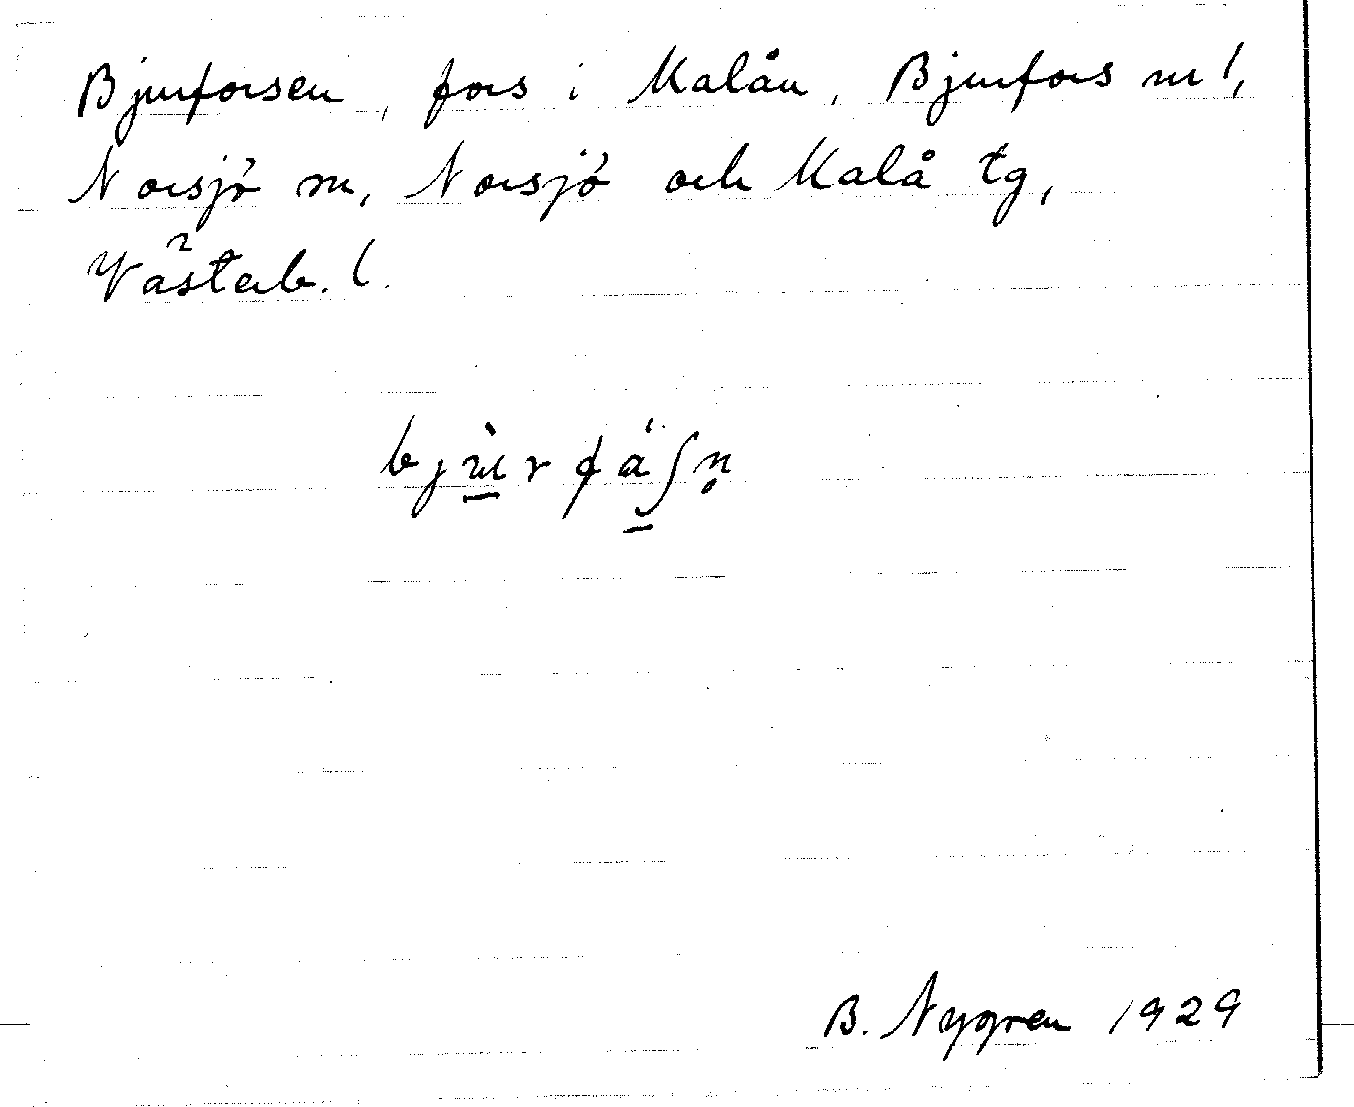 Bjurforsen, fors i Malån, Bjurfors nr 1,
Norsjö sn, Norsjö och Malå tg,
Västerb. l.
bjùrfä́ʃn̥
B. Nygren 1929